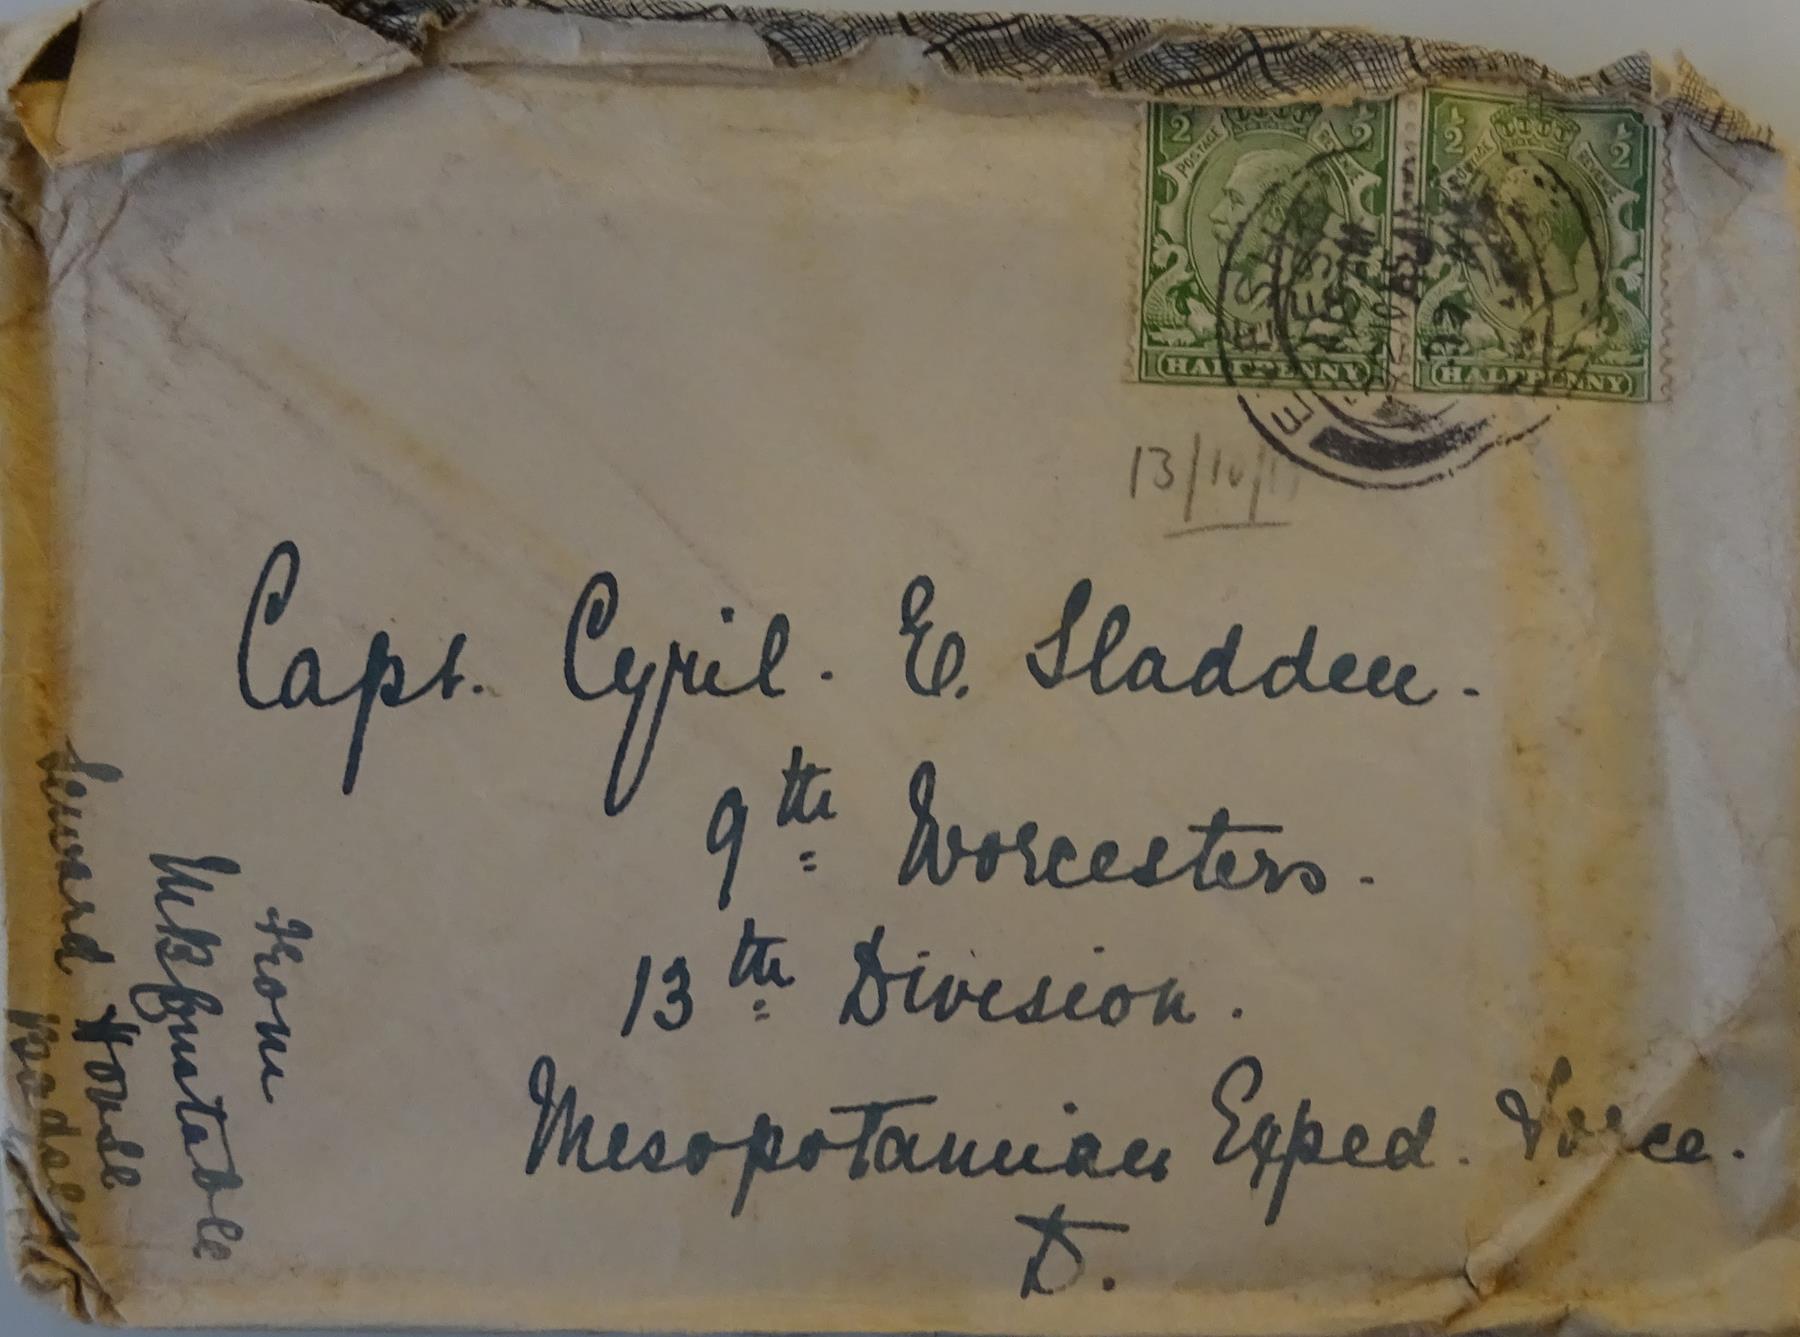 ½ POSTAGE REVENUE ½
HALFPENNY
½ POSTAGE REVENUE ½
HALFPENNY
EVESH
13/10/
Capt. Cyril. E. Sladden.
9th Worcesters.
13th Division.
Mesopotamian Exped. Force.
D.
From
MB Constable
Seward House
Badsey